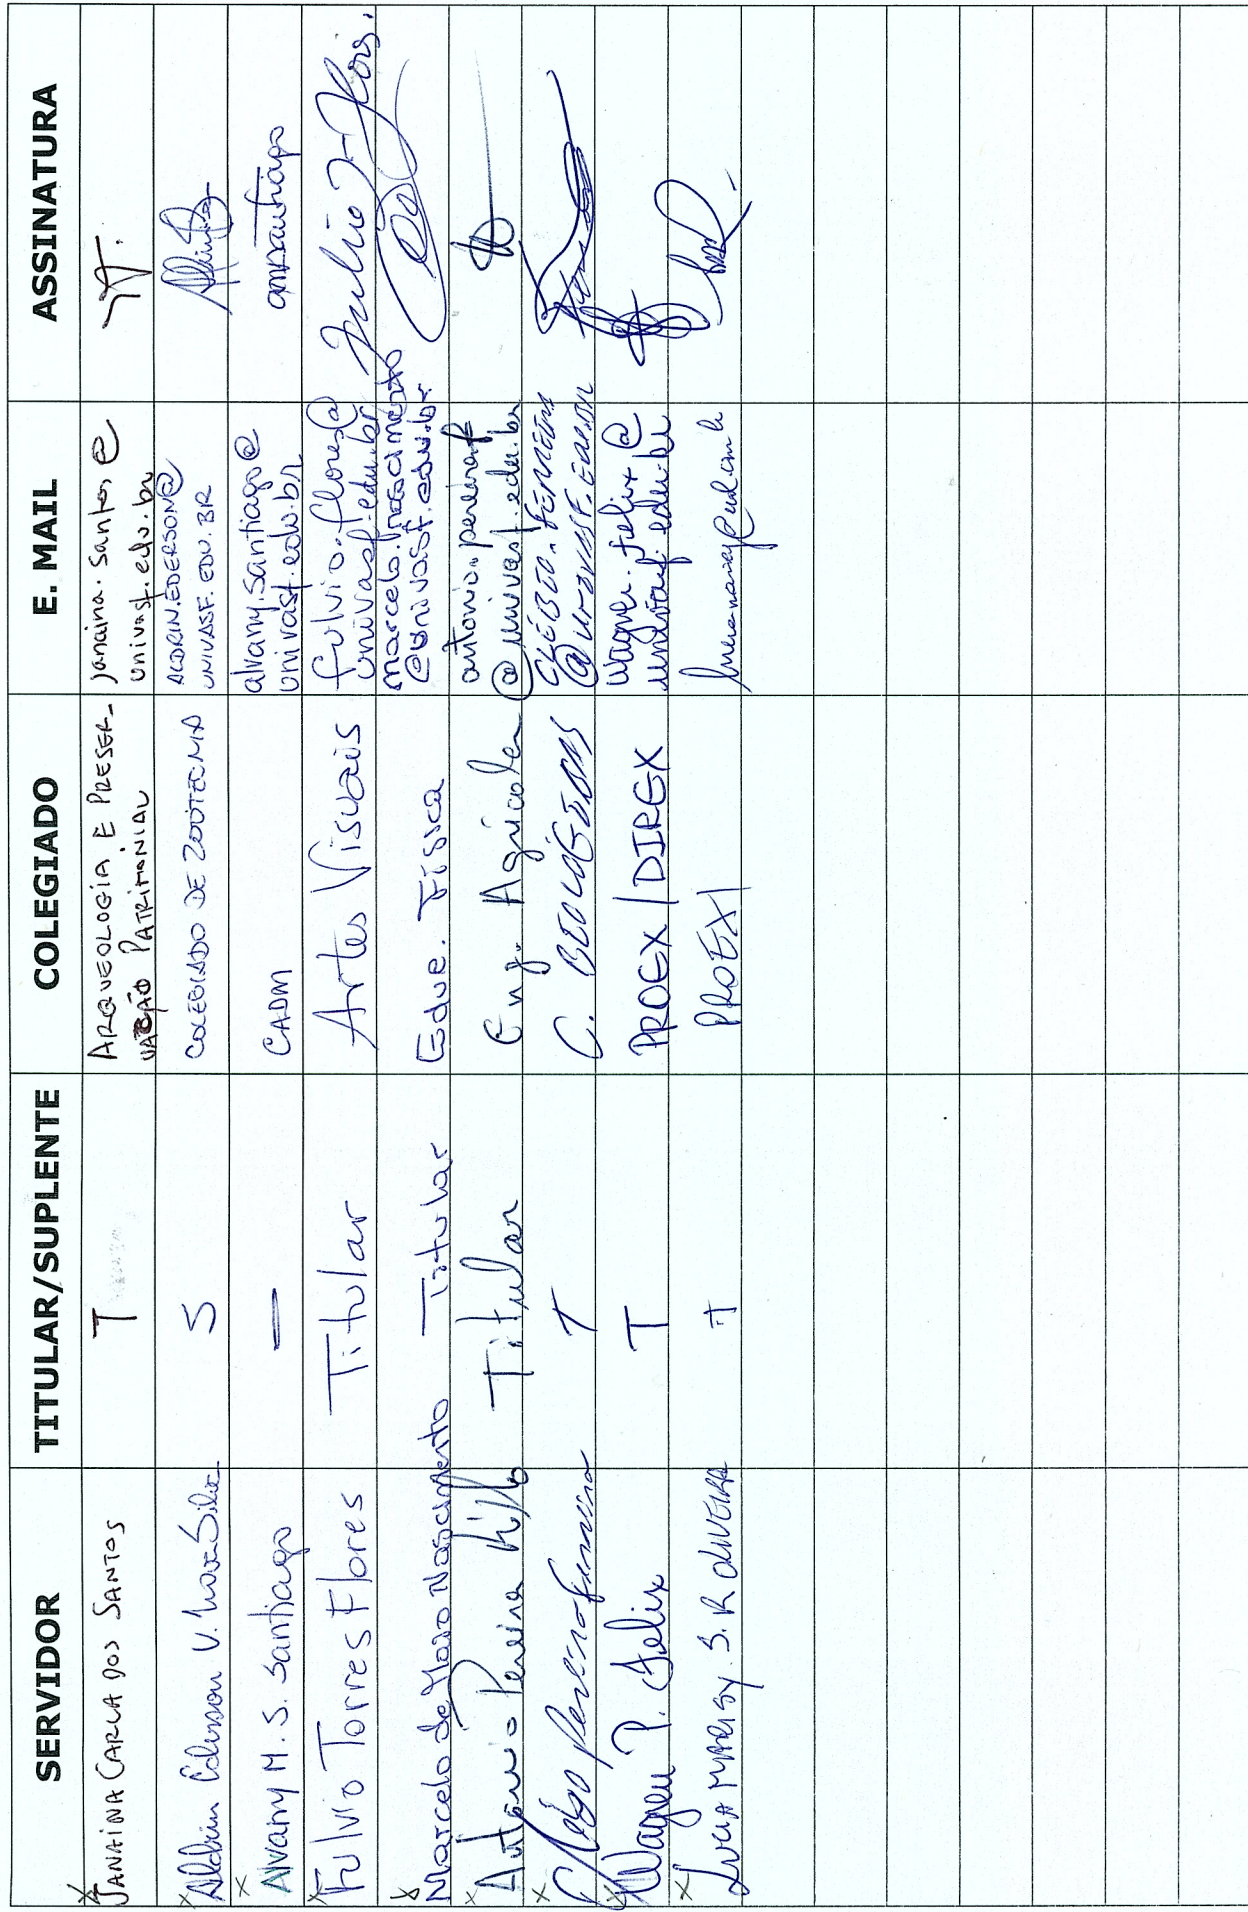 SERVIDOR TITULAR/SUPLENTE COLEGIADO E. MAIL ASSINATURA
JANAINA CARLA DOS SANTOS T ARQUEOLOGIA E PRESER- janaina.santos@
VAÇÃO PATRIMONIAL univasf.edu.br
Aldrin Ederson V. Silva S COLEGIADO DE ZOOTECNIA ALDRIN.EDERSON@
UNIVASF.EDU.BR
Alvany M. S. Santiago — CADM alvany.santiago@ amsantiago
univasf.edu.br
Fulvio Torres Flores Titular Artes Visuais fulvio.flores@ Fulvio T. Flores.
univasf.edu.br
Marcelo de Maio Nascimento Titular Educ. Física marcelo.nascimento
@univasf.edu.br
Antonio Pereira Filho Titular Eng. Agrícola antonio.pereiraf
@univasf.edu.br
Clébio Pereira Ferreira T C. BIOLÓGICAS CLÉBIO.FERREIRA
@UNIVASF.EDU.BR
Wagner P. Felix T PROEX/DIREX wagner.felix@
univasf.edu.br
Lucia MARISY S. R OLIVEIRA T PROEX/